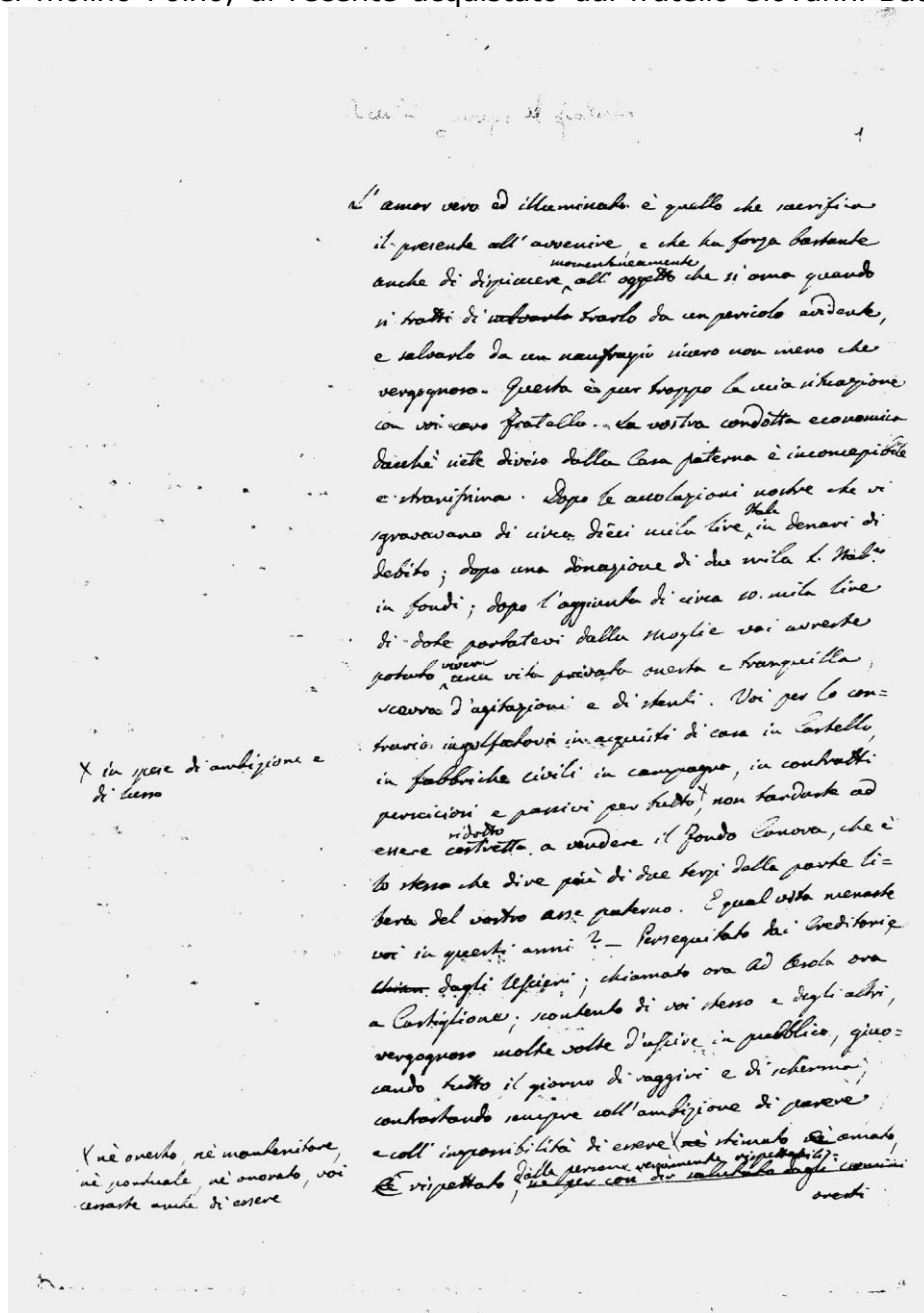 el Molino Polino, di recente acquistato dal fratello Giovanni Bat
1
L'amor vero ed illuminato è quello che sacrifica
il presente all'avvenire, e che ha forza bastante
momentaneamente
anche di dispiacere all'oggetto che si ama quando
si tratti di salvarlo trarlo da un pericolo evidente,
e salvarlo da un naufragio sicuro non meno che
vergognoso. Questa è pur troppo la mia situazione
con voi caro fratello. La vostra condotta economica
dacchè siete diviso dalla Casa paterna è inconcepibile
e stranissima. Dopo le accolazioni nostre che vi
Itale
sgravavano di circa dieci mila lire in denari di
debito; dopo una donazione di due mila L. Ital.ne
in fondi; dopo l'aggiunta di circa 10. mila lire
di dote portatevi dalla moglie voi avreste
vivere
potuto una vita privata onesta e tranquilla,
scevra d'agitazioni e di stenti. Voi per lo con=
trario ingolfatovi in acquisti di casa in Castello,
in fabbriche civili in campagna, in contratti
X in spese di ambizione e
di lusso
perniciosi e passivi per tutto X, non tardaste ad
ridotto
essere costretto a vendere il fondo Canova, che è
lo stesso che dire più di due terzi della parte li=
bera del vostro asse paterno. E qual vita menaste
voi in questi anni? — Perseguitato dai Creditori e
chiam dagli Uscieri; chiamato ora ad Asola ora
a Castiglione; scontento di voi stesso e degli altri,
vergognoso molte volte d'uscire in pubblico, giuo=
cando tutto il giorno di raggiri e di scherma,
contrastando sempre coll'ambizione di parere
e coll'impossibilità di essere X nè stimato nè amato,
X nè onesto, nè mantenitore,
nè pontuale, nè onorato, voi
cessaste anche di essere
dalle persone veramente rispettabili
nè rispettato, nè per così dir salutato dagli uomini
onesti